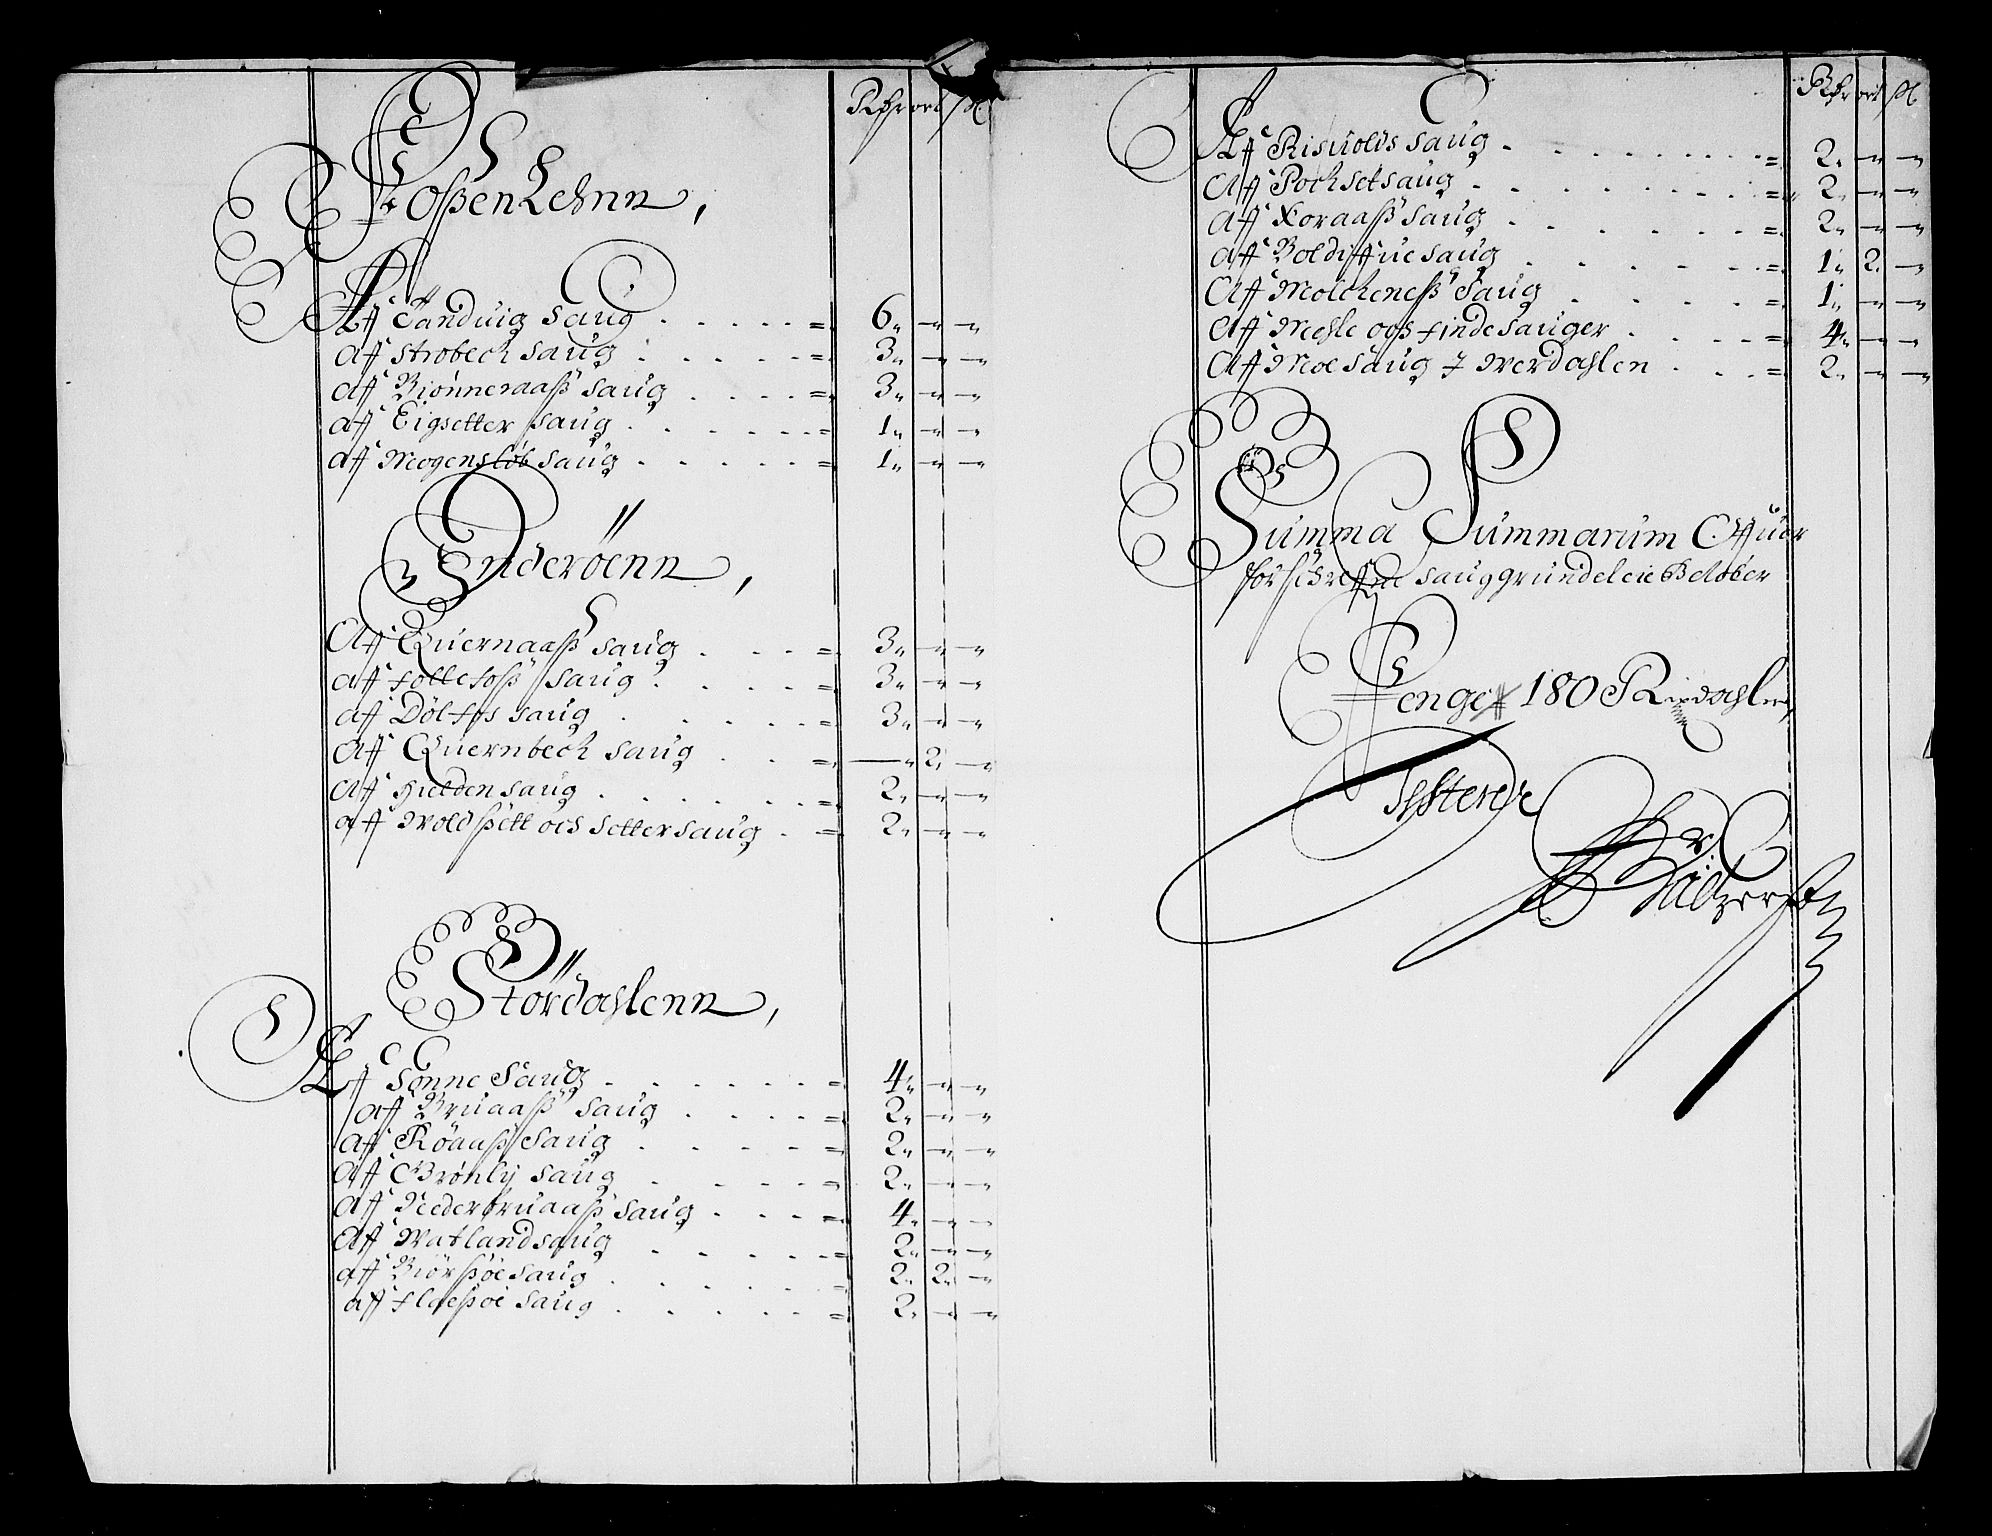 Rdr ort sk
Fossen Lehnn,
Aff Tanduig Saug . . . . . = 6 „ — „ — „
Aff Strobech saug . . . . . = 3 „ — „ — „
Aff Biönneraaß saug . . . . = 3 „ — „ — „
aff Eigsetter saug . . . . . . = 1 „ — „ — „
aff Mogensløb saug . . . . . = 1 „ — „ — „
Inderöenn,
Aff Quernaaß saug . . . . = 3 „ — „ — „
aff follefoß saug . . . . . = 3 „ — „ — „
aff Dölfos saug . . . . . = 3 „ — „ — „
Aff Quernbech saug . . . = — „ 2 „ — „
Aff hielden saug . . . . . . = 2 „ — „ — „
aff Woldßett och Setter saug . = 2 „ — „ — „
Stördahlenn,
Aff Sonne Saug . . . . . . = 4 „ — „ — „
aff Bruaaß saug . . . . = 2 „ — „ — „
aff Röaaß saug . . . . . = 2 „ — „ — „
Aff Grönly saug . . . . . = 2 „ — „ — „
aff Nederbruaaß saug . . . . = 4 „ — „ — „
Aff Watland saug . . . . . = 2 „ — „ — „
aff Biörßöe saug . . . . . = 2 „ 2 „ — „
aff flaeßöe saug . . . . . = 2 „ — „ — „
Rdr ort sk
Aff Risuolds saug . . . . . . . = 2 „ — „ — „
Aff Pochsetsaug . . . . . . . = 2 „ — „ — „
aff Koraaß saug . . . . . . = 2 „ — „ — „
aff Boldiffue saug . . . . . . = 1 „ 2 „ — „
Aff Molckeneß Saug . . . . = 1 „ — „ — „
Aff Mehle och finde sauger . . . . = 4 „ — „ — „
Aff Moe saug j Werdahlen . . . = 2 „ — „ — „
Summa Summarum Offuer
forschreffne sauggrundeleie Beløber
Penge 180 Rixdahler,
Testerer
Baltzersøn